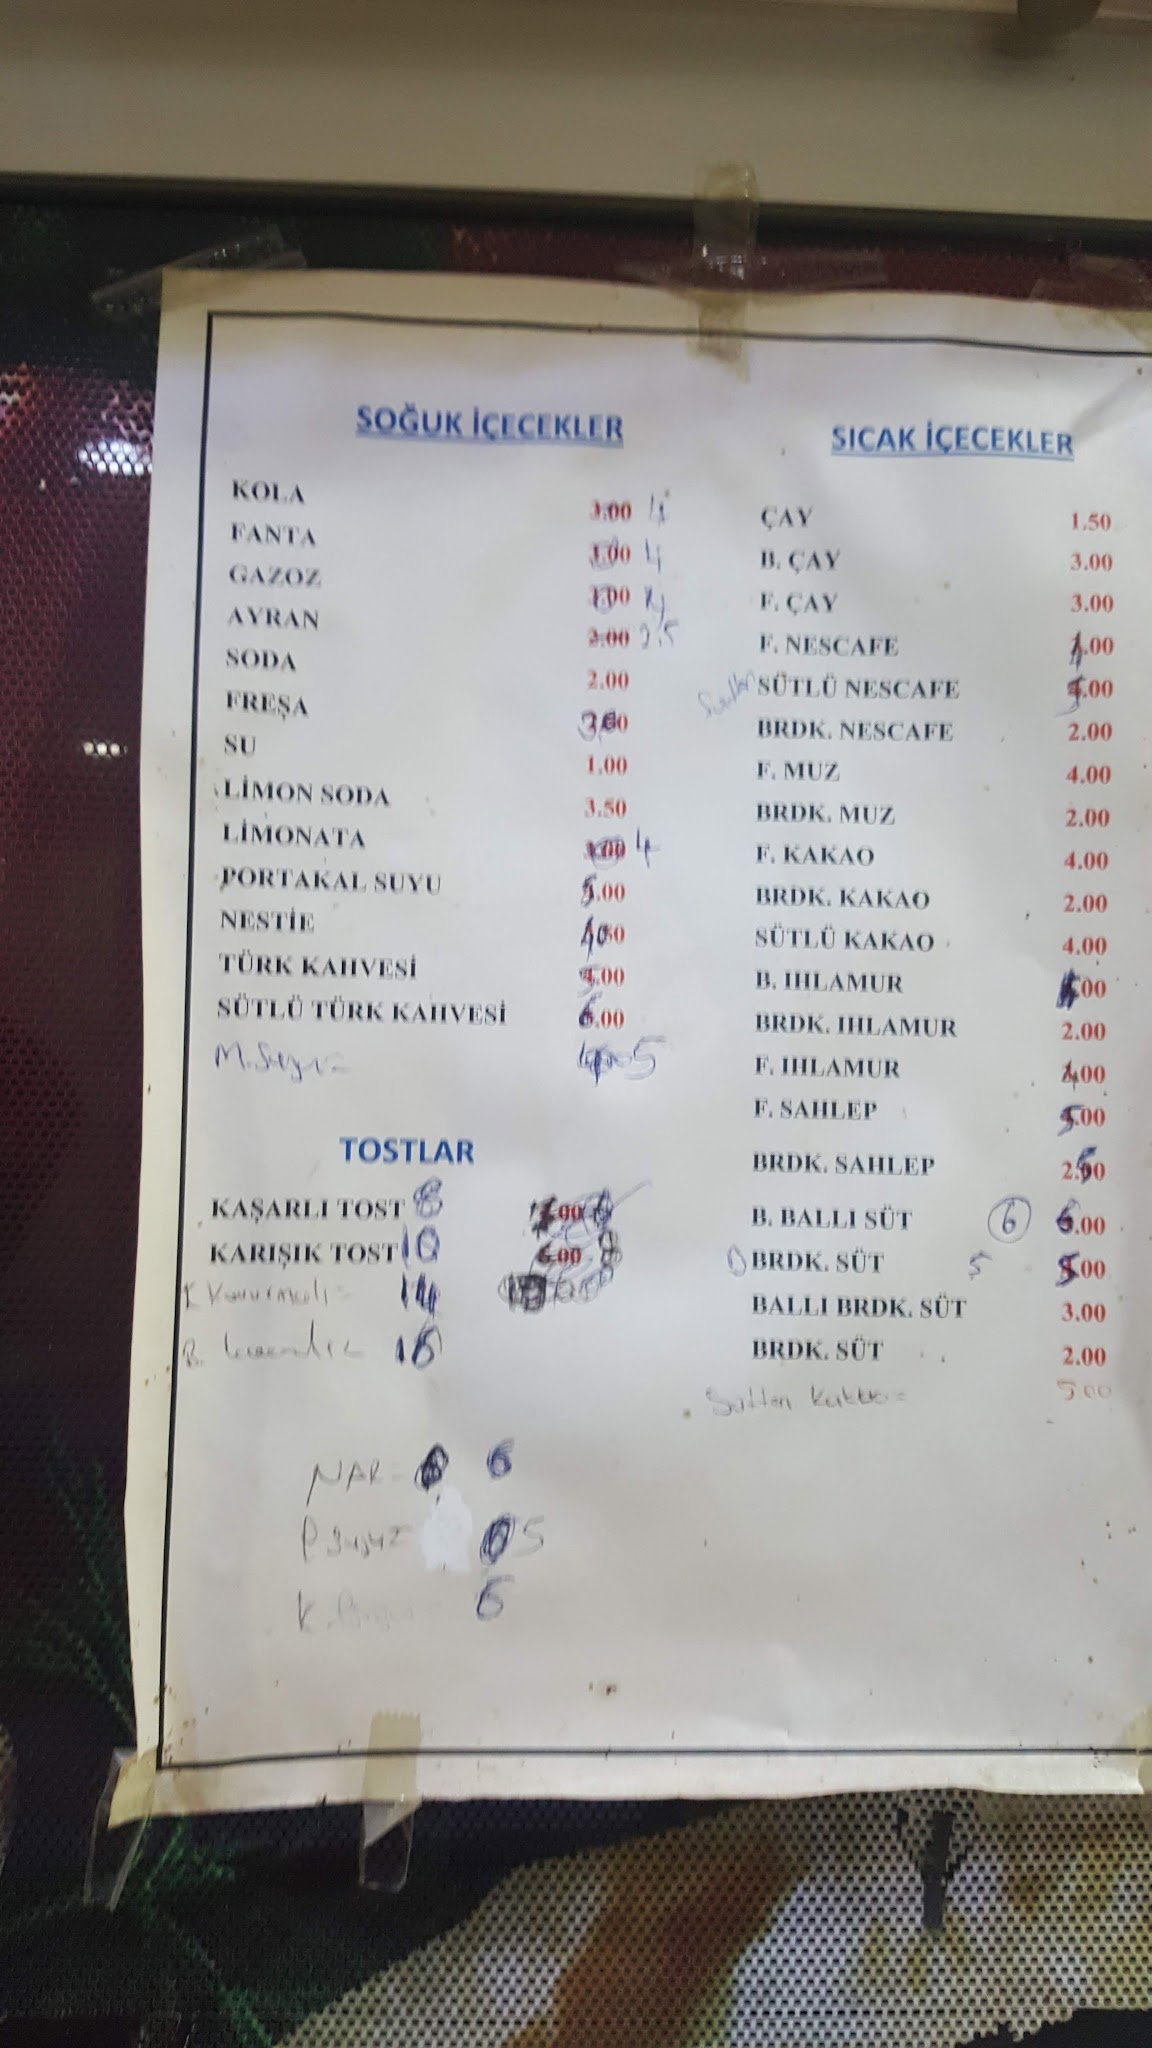 SOĞUK İÇECEKLER
KOLA 3.00 4
FANTA 3.00 4
GAZOZ 3.00
AYRAN 2.00 2.5
SODA 2.00
FREŞA
SU 1.00
LİMON SODA 3.50
LİMONATA 4
PORTAKAL SUYU 5.00
NESTİE
TÜRK KAHVESİ 5.00
SÜTLÜ TÜRK KAHVESİ 6.00
M. Suyu = 5
TOSTLAR
KAŞARLI TOST 8
KARIŞIK TOST 10 6.00
14
NAR = 6
P Suyu = 5
K.
SICAK İÇECEKLER
ÇAY 1.50
B. ÇAY 3.00
F. ÇAY 3.00
F. NESCAFE 4.00
SÜTLÜ NESCAFE 5.00
BRDK. NESCAFE 2.00
F. MUZ 4.00
BRDK. MUZ 2.00
F. KAKAO 4.00
BRDK. KAKAO 2.00
SÜTLÜ KAKAO 4.00
B. IHLAMUR
BRDK. IHLAMUR 2.00
F. IHLAMUR 4.00
F. SAHLEP 5.00
BRDK. SAHLEP
B. BALLI SÜT 6 6.00
BRDK. SÜT 5 5.00
BALLI BRDK. SÜT 3.00
BRDK. SÜT 2.00
5 00